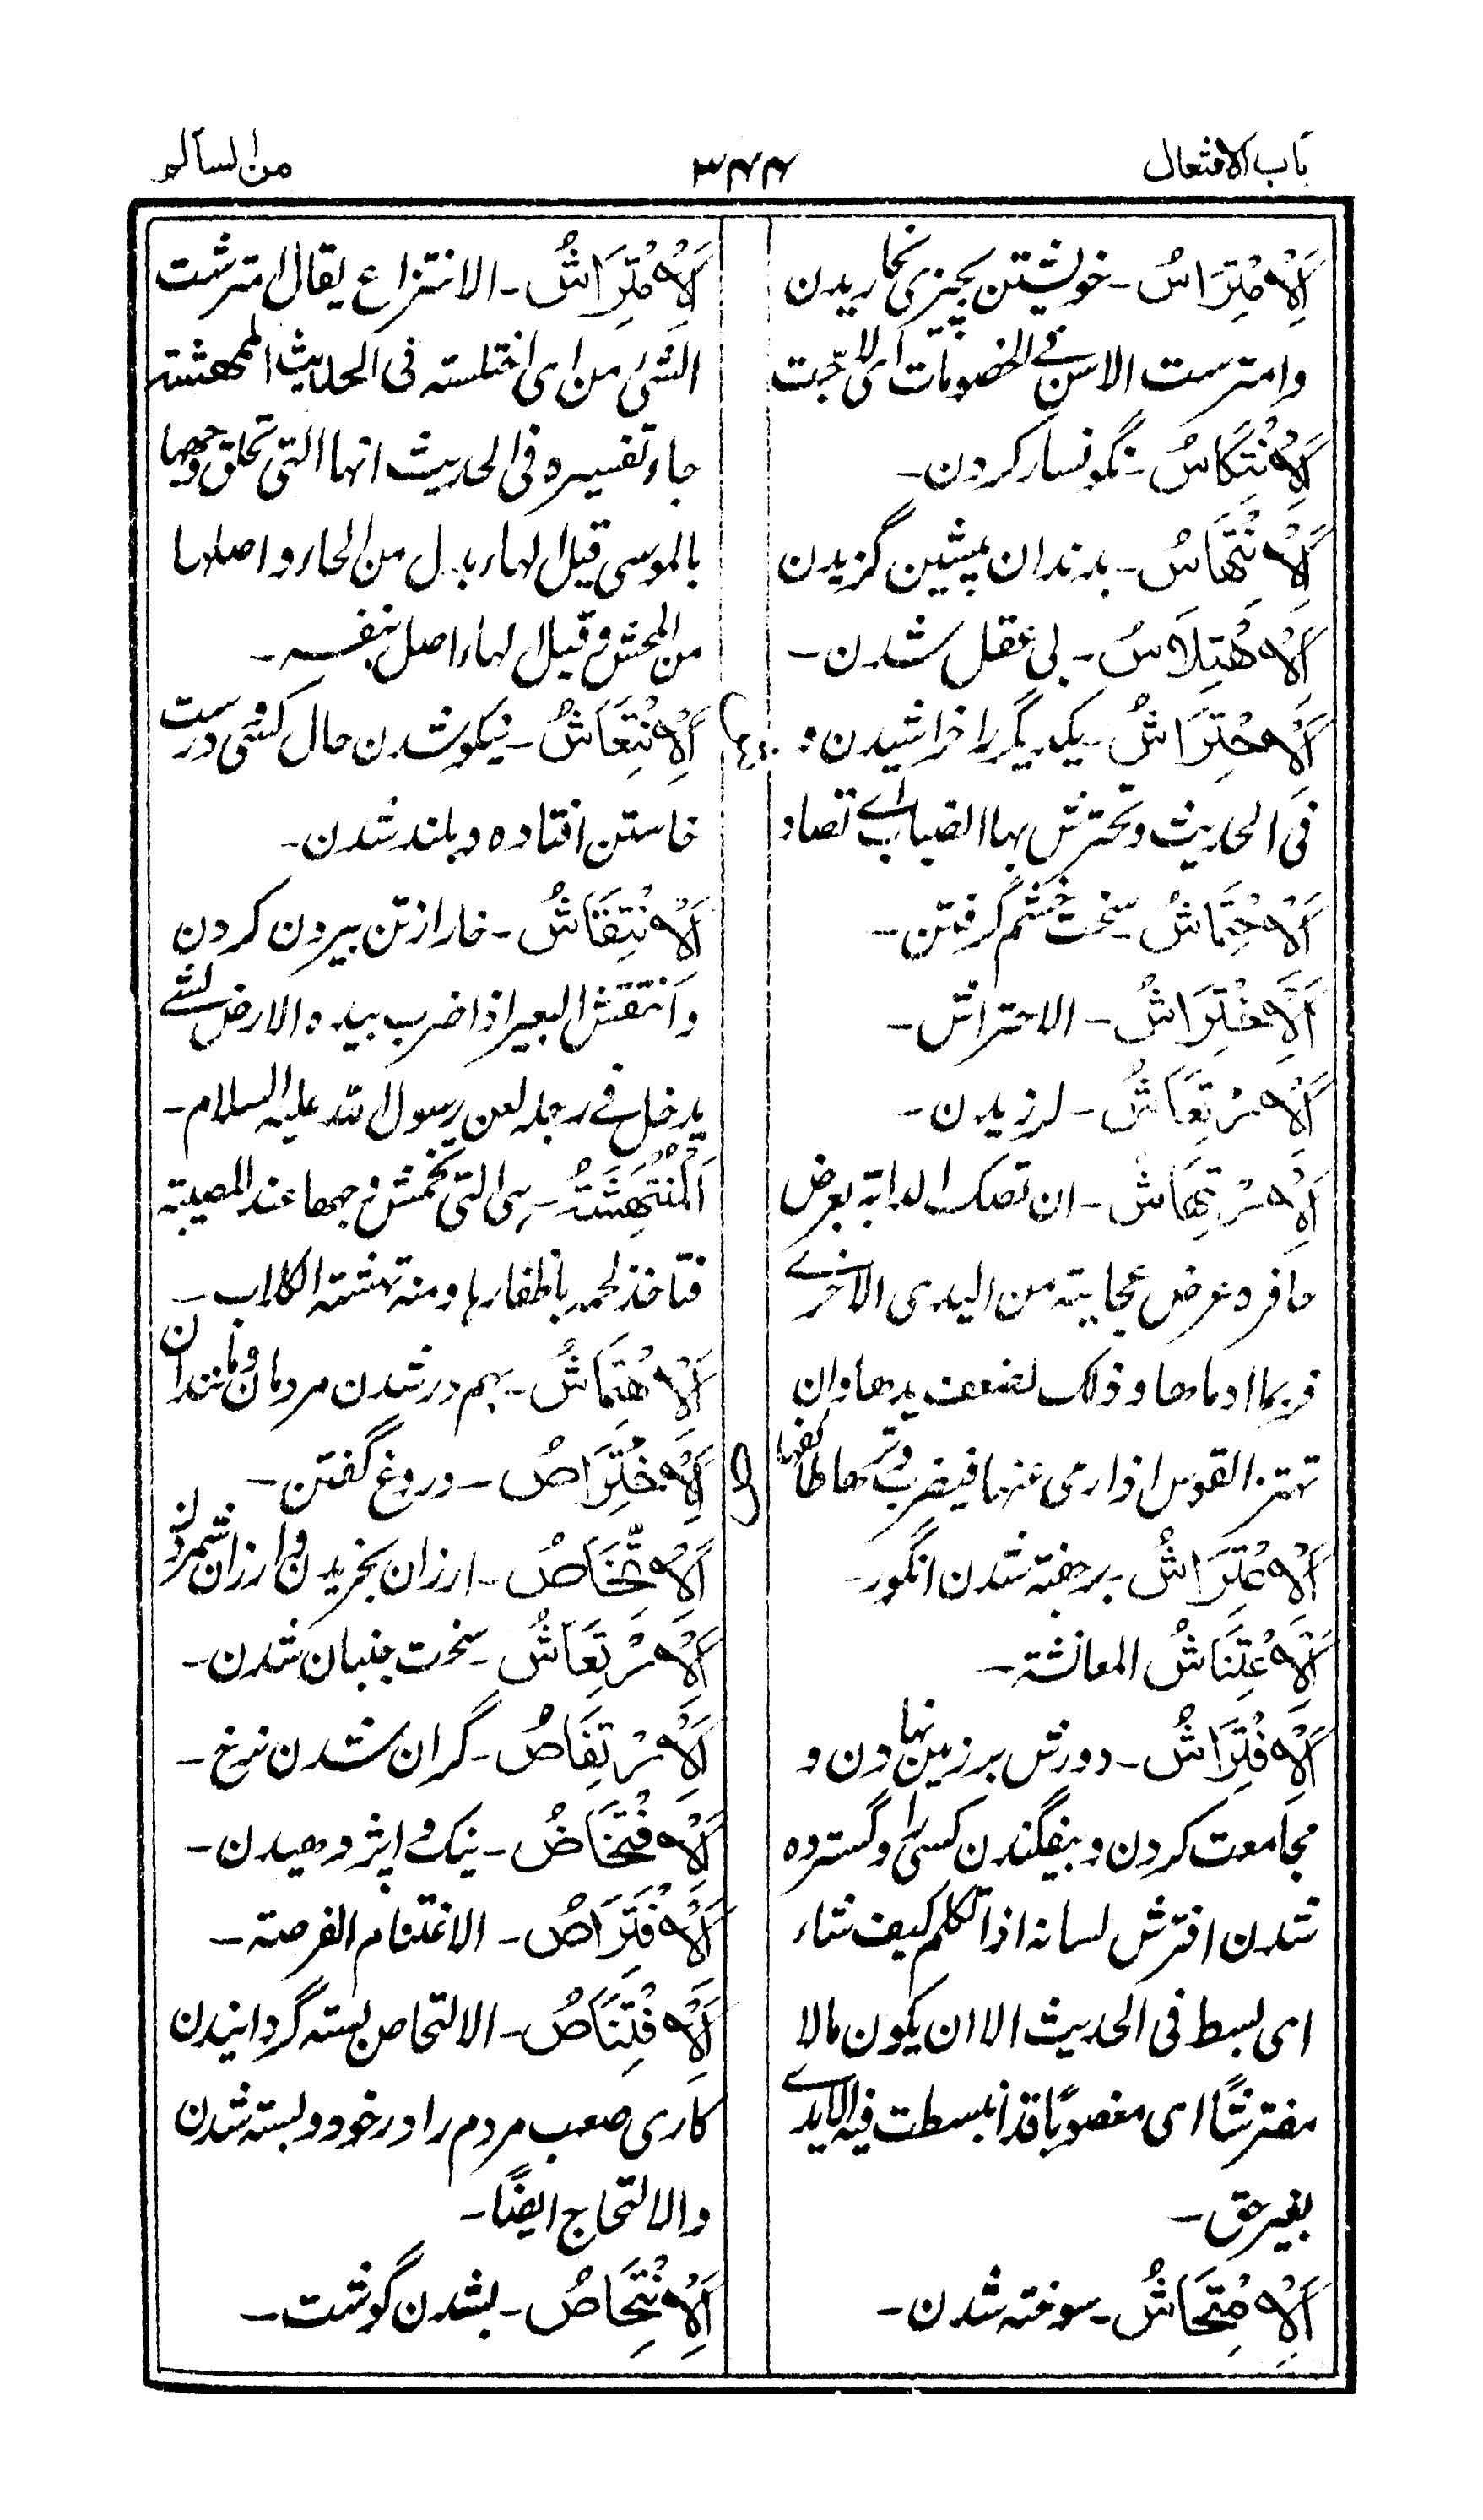 باب الافتعال
۳۴۴
من السالم
اَلْاِمْتِرَاسُ - خویشتن بچیزی خاریدن
وامترست الاسن فی الخصومات ای لاحّت
اَلْاِنْتِکَاسُ - نگونسار کردن -
اَلْاِنْتِهَاسُ - بدندان پیشین گزیدن
اَلْاِهْتِلَاسُ - بی عقل شدن -
اَلْاِحْتِرَاشُ - یکدیگر را خراشیدن و
فی الحدیث وتحترش بها الضباب ای تصاد
اَلْاِحْتِمَاشُ - سخت خشم گرفتن -
اَلْاِخْتِرَاشُ - الاحتراش -
اَلْاِرْتِعَاشُ - لرزیدن -
اَلْاِرْتِهَاشُ - ان تصک الدابة بعرض
حافر وعرض عجایته من الیدی الاخرے
فربما ادماها وذلک لضعف یدها وان
تهتز القوس اذا رمی عنها فیضرب وترها طائفها
اَلْاِعْتِرَاشُ - برجفته شدن انگور -
اَلْاِعْتِنَاشُ المعانشة -
اَلْاِفْتِرَاشُ - دو رش بر زمین نهادن و
مجامعت کردن و بیفگندن کسی را و گسترده
شدن افترش لسانه اذا تکلم کیف شاء
ای بسط فی الحدیث الا ان یکون مالا
مفترشًا ای مغصوبًا قد انبسطت فیه الایدے
بغیر حق -
اَلْاِمْتِحَاشُ - سوخته شدن -
اَلْاِمْتِرَاشُ - الانتزاع یقال امترشت
الشیٔ من ای اختلسته فی الحدیث الممهتشة
جاء تفسیره فی الحدیث انها التی تحلق وجهها
بالموسی قیل الهاء بدل من الحاء واصلها
من المحش وقیل الهاء اصل بنفسه -
اَلْاِنْتِعَاشُ - نیکو شدن حال کسی و درست
خاستن افتاده و بلند شدن -
اَلْاِنْتِقَاشُ - خار از تن بیرون کردن
وانتقش البعیر اذا ضرب بیده الارض لشے
یدخل فے رجله لعن رسول الله علیه السلام -
اَلْمُنْتَهِشَةُ - هی التی تخمش وجهها عند المصیبة
فتاخذ لحمه باظفارها ومنه نهشته الکلاب -
اَلْاِهْتِمَاشُ - بهم در شدن مردمان و مانند آن
ص
اَلْاِخْتِرَاصُ - دروغ گفتن -
اَلْاِرْتِخَاصُ - ارزان بخریدن و ارزان شمردن
اَلْاِرْتِعَاشُ - سخت جنبان شدن -
اَلْاِرْتِفَاصُ - گران شدن نرخ -
اَلْاِفْتِحَاصُ - نیک وا پژوهیدن -
اَلْاِفْتِرَاصُ - الاغتنام الفرصة -
اَلْاِفْتِنَاصُ - الالتحاص بسته گردانیدن
کاری صعب مردم را در خود و بسته شدن
والالتحاج ایضًا -
اَلْاِنْتِحَاصُ - بشدن گوشت -